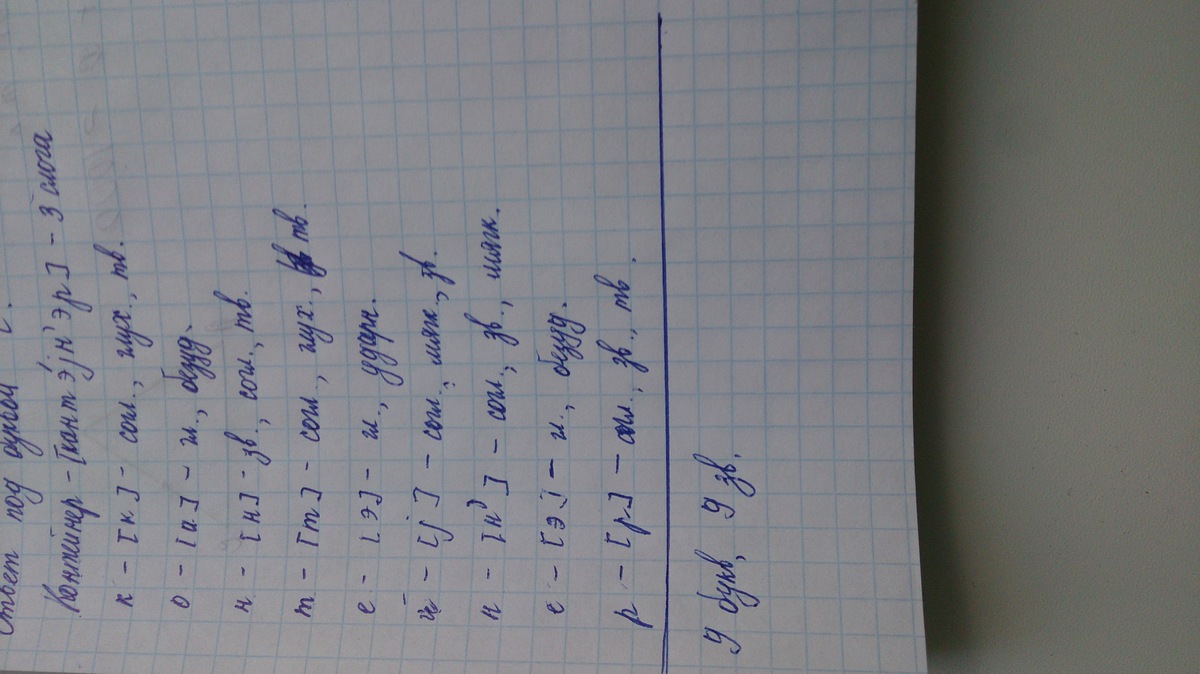 ответ под буквой
Контейнер - [кантэ́jн'эр] - 3 слога
к - [к] - согл., глух., тв.
о - [а] - гл., безуд.
н - [н] - зв., согл., тв.
т - [т] - согл., глух., тв.
е - [э] - гл., ударн.
й - [j] - согл., мягк., зв.
н - [н'] - согл., зв., мягк.
е - [э] - гл., безуд.
р - [р] - согл., зв., тв.
9 букв, 9 зв.